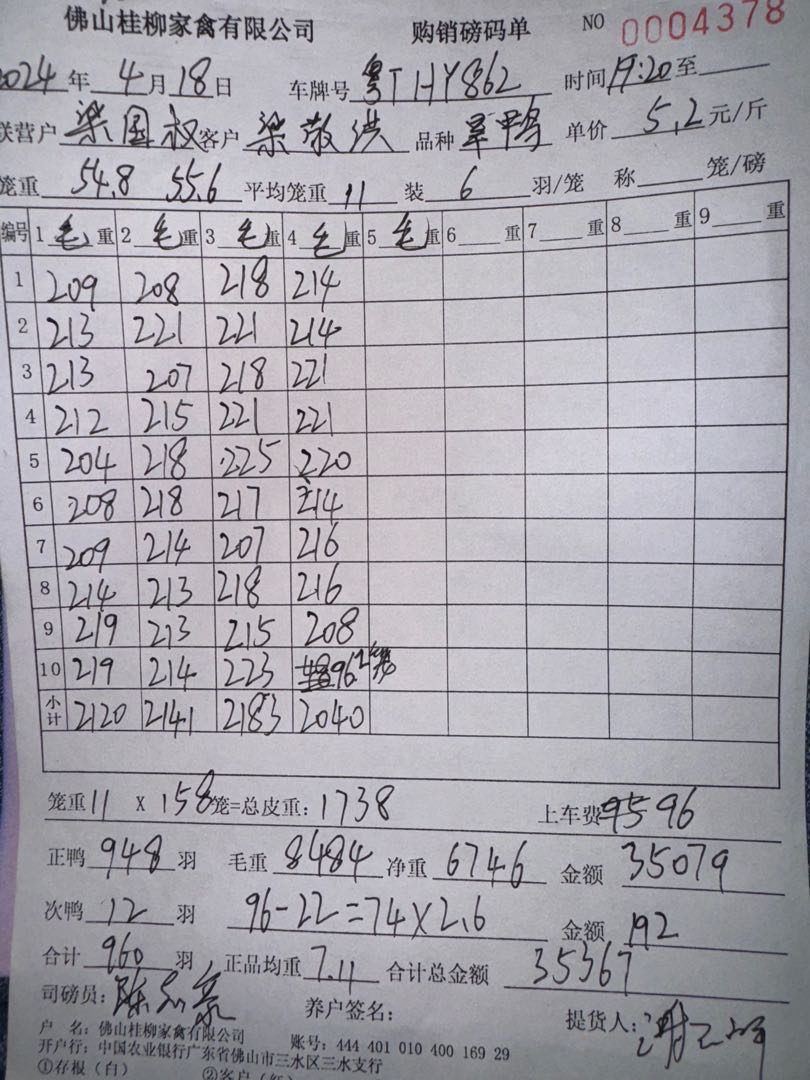 佛山桂柳家禽有限公司 购销磅码单 NO 0004378
2024年 4月 18日 车牌号 粤THY862 时间 19:20 至
联营户 梁国权 客户 梁敬洪 品种 旱鸭 单价 5.2 元/斤
笼重 54.8 55.6 平均笼重 11 装 6 羽/笼 称 笼/磅
编号 1 毛 重 2 毛 重 3 毛 重 4 毛 重 5 毛 重 6 重 7 重 8 重 9 重
1 209 208 218 214
2 213 221 221 214
3 213 207 218 221
4 212 215 221 221
5 204 218 225 220
6 208 218 217 214
7 209 214 207 216
8 214 213 218 216
9 219 213 215 208
10 219 214 223 96 2笼
小计 2120 2141 2183 2040
笼重 11 X 158 笼=总皮重: 1738 上车费 95 96
正鸭 948 羽 毛重 8484 净重 6746 金额 35079
次鸭 12 羽 96-22=74×2.6 金额 192
合计 960 羽 正品均重 7.11 合计总金额 35367
司磅员: 养户签名: 提货人:
户 名: 佛山桂柳家禽有限公司 账号: 444 401 010 400 169 29
开户行: 中国农业银行广东省佛山市三水区三水支行
①存根(白) ②客户(红)